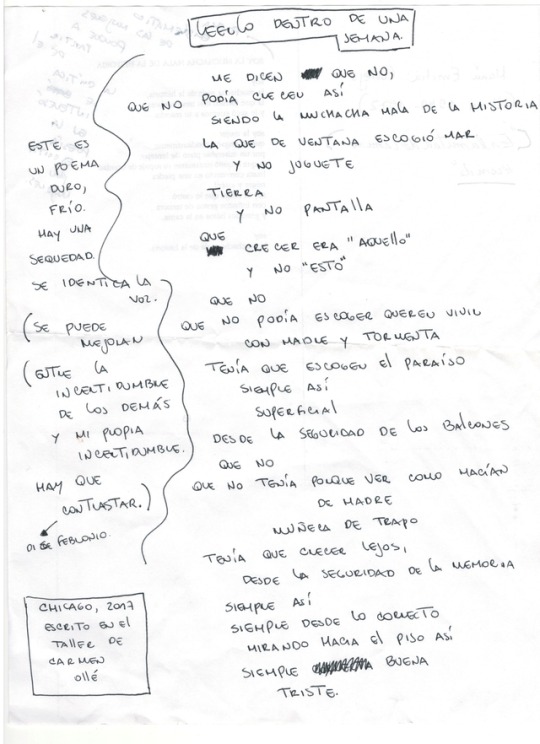 LEERLO DENTRO DE UNA
SEMANA.
ME DICEN QUE NO,
QUE NO PODÍA CRECER ASÍ
SIENDO LA MUCHACHA MALA DE LA HISTORIA
LA QUE DE VENTANA ESCOGIÓ MAR
Y NO JUGUETE
TIERRA
Y NO PANTALLA
QUE
CRECER ERA "AQUELLO"
Y NO "ESTO"
QUE NO
QUE NO PODÍA ESCOGER QUERER VIVIR
CON MADRE Y TORMENTA
TENÍA QUE ESCOGER EL PARAÍSO
SIEMPRE ASÍ
SUPERFICIAL
DESDE LA SEGURIDAD DE LOS BALCONES
QUE NO
QUE NO TENÍA PORQUE VER COMO HACÍAN
DE MADRE
MUÑECA DE TRAPO
TENÍA QUE CRECER LEJOS,
DESDE LA SEGURIDAD DE LA MEMORIA
SIEMPRE ASÍ
SIEMPRE DESDE LO CORRECTO
MIRANDO HACIA EL PISO ASÍ
SIEMPRE BUENA
TRISTE.
ESTE ES
UN POEMA
DURO,
FRÍO.
HAY UNA
SEQUEDAD.
SE IDENTICA LA
VOZ.
(SE PUEDE
MEJORAR
(ENTRE LA
INCERTIDUMBRE
DE LOS DEMÁS
Y MI PROPIA
INCERTIDUMBRE.
HAY QUE
CONTRASTAR.)
DICE FEBRONIO.
CHICAGO, 2017
ESCRITO EN EL
TALLER DE
CARMEN
OLLÉ